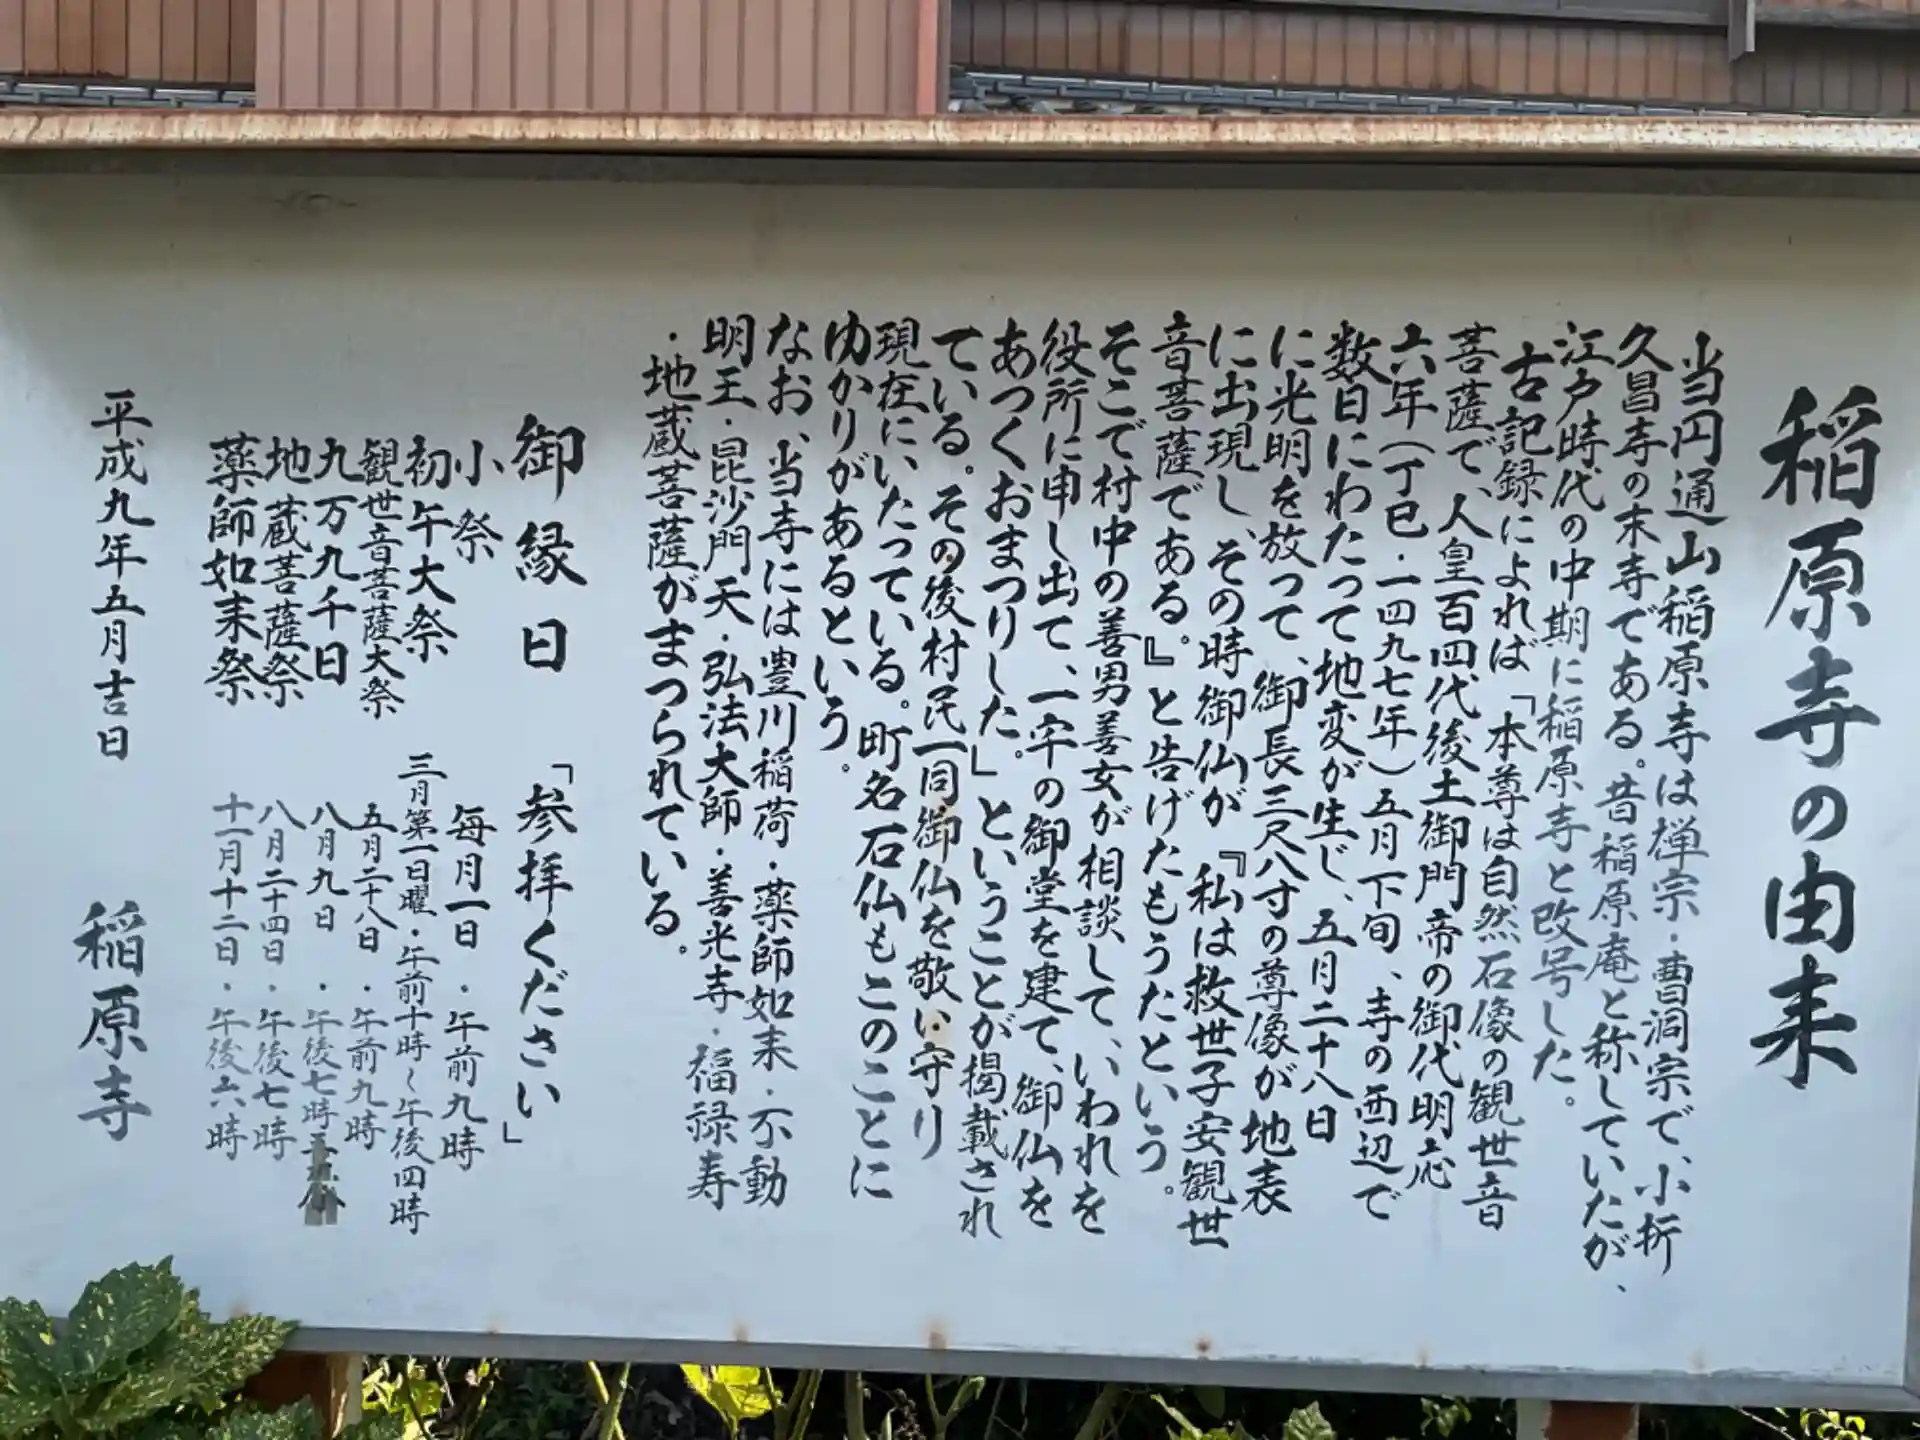 稲原寺の由来
当円通山稲原寺は禅宗・曹洞宗で、小折
久昌寺の末寺である。昔稲原庵と称していたが、
江戸時代の中期に稲原寺と改号した。
古記録によれば「本尊は自然石像の観世音
菩薩で、人皇百四代後土御門帝の御代明応
六年(丁巳・一四九七年)五月下旬、寺の西辺で
数日にわたって地変が生じ、五月二十八日
に光明を放って、御長三尺八寸の尊像が地表
に出現し、その時御仏が『私は救世子安観世
音菩薩である。』と告げたもうたという。
そこで村中の善男善女が相談して、いわれを
役所に申し出て、一宇の御堂を建て、御仏を
あつくおまつりした。」ということが掲載され
ている。その後村民一同御仏を敬い守り
現在にいたっている。町名石仏もこのことに
ゆかりがあるという。
なお、当寺には豊川稲荷・薬師如来・不動
明王・昆沙門天・弘法大師・善光寺・福禄寿
・地蔵菩薩がまつられている。
御縁日 「参拝ください」
小祭 毎月一日・午前九時
初午大祭 三月第一日曜・午前十時~午後四時
観世音菩薩大祭 五月二十八日・午前九時
九万九千日 八月九日・午後七時五分
地蔵菩薩祭 八月二十四日・午後七時
薬師如来祭 十一月十二日・午後六時
平成九年五月吉日 稲原寺